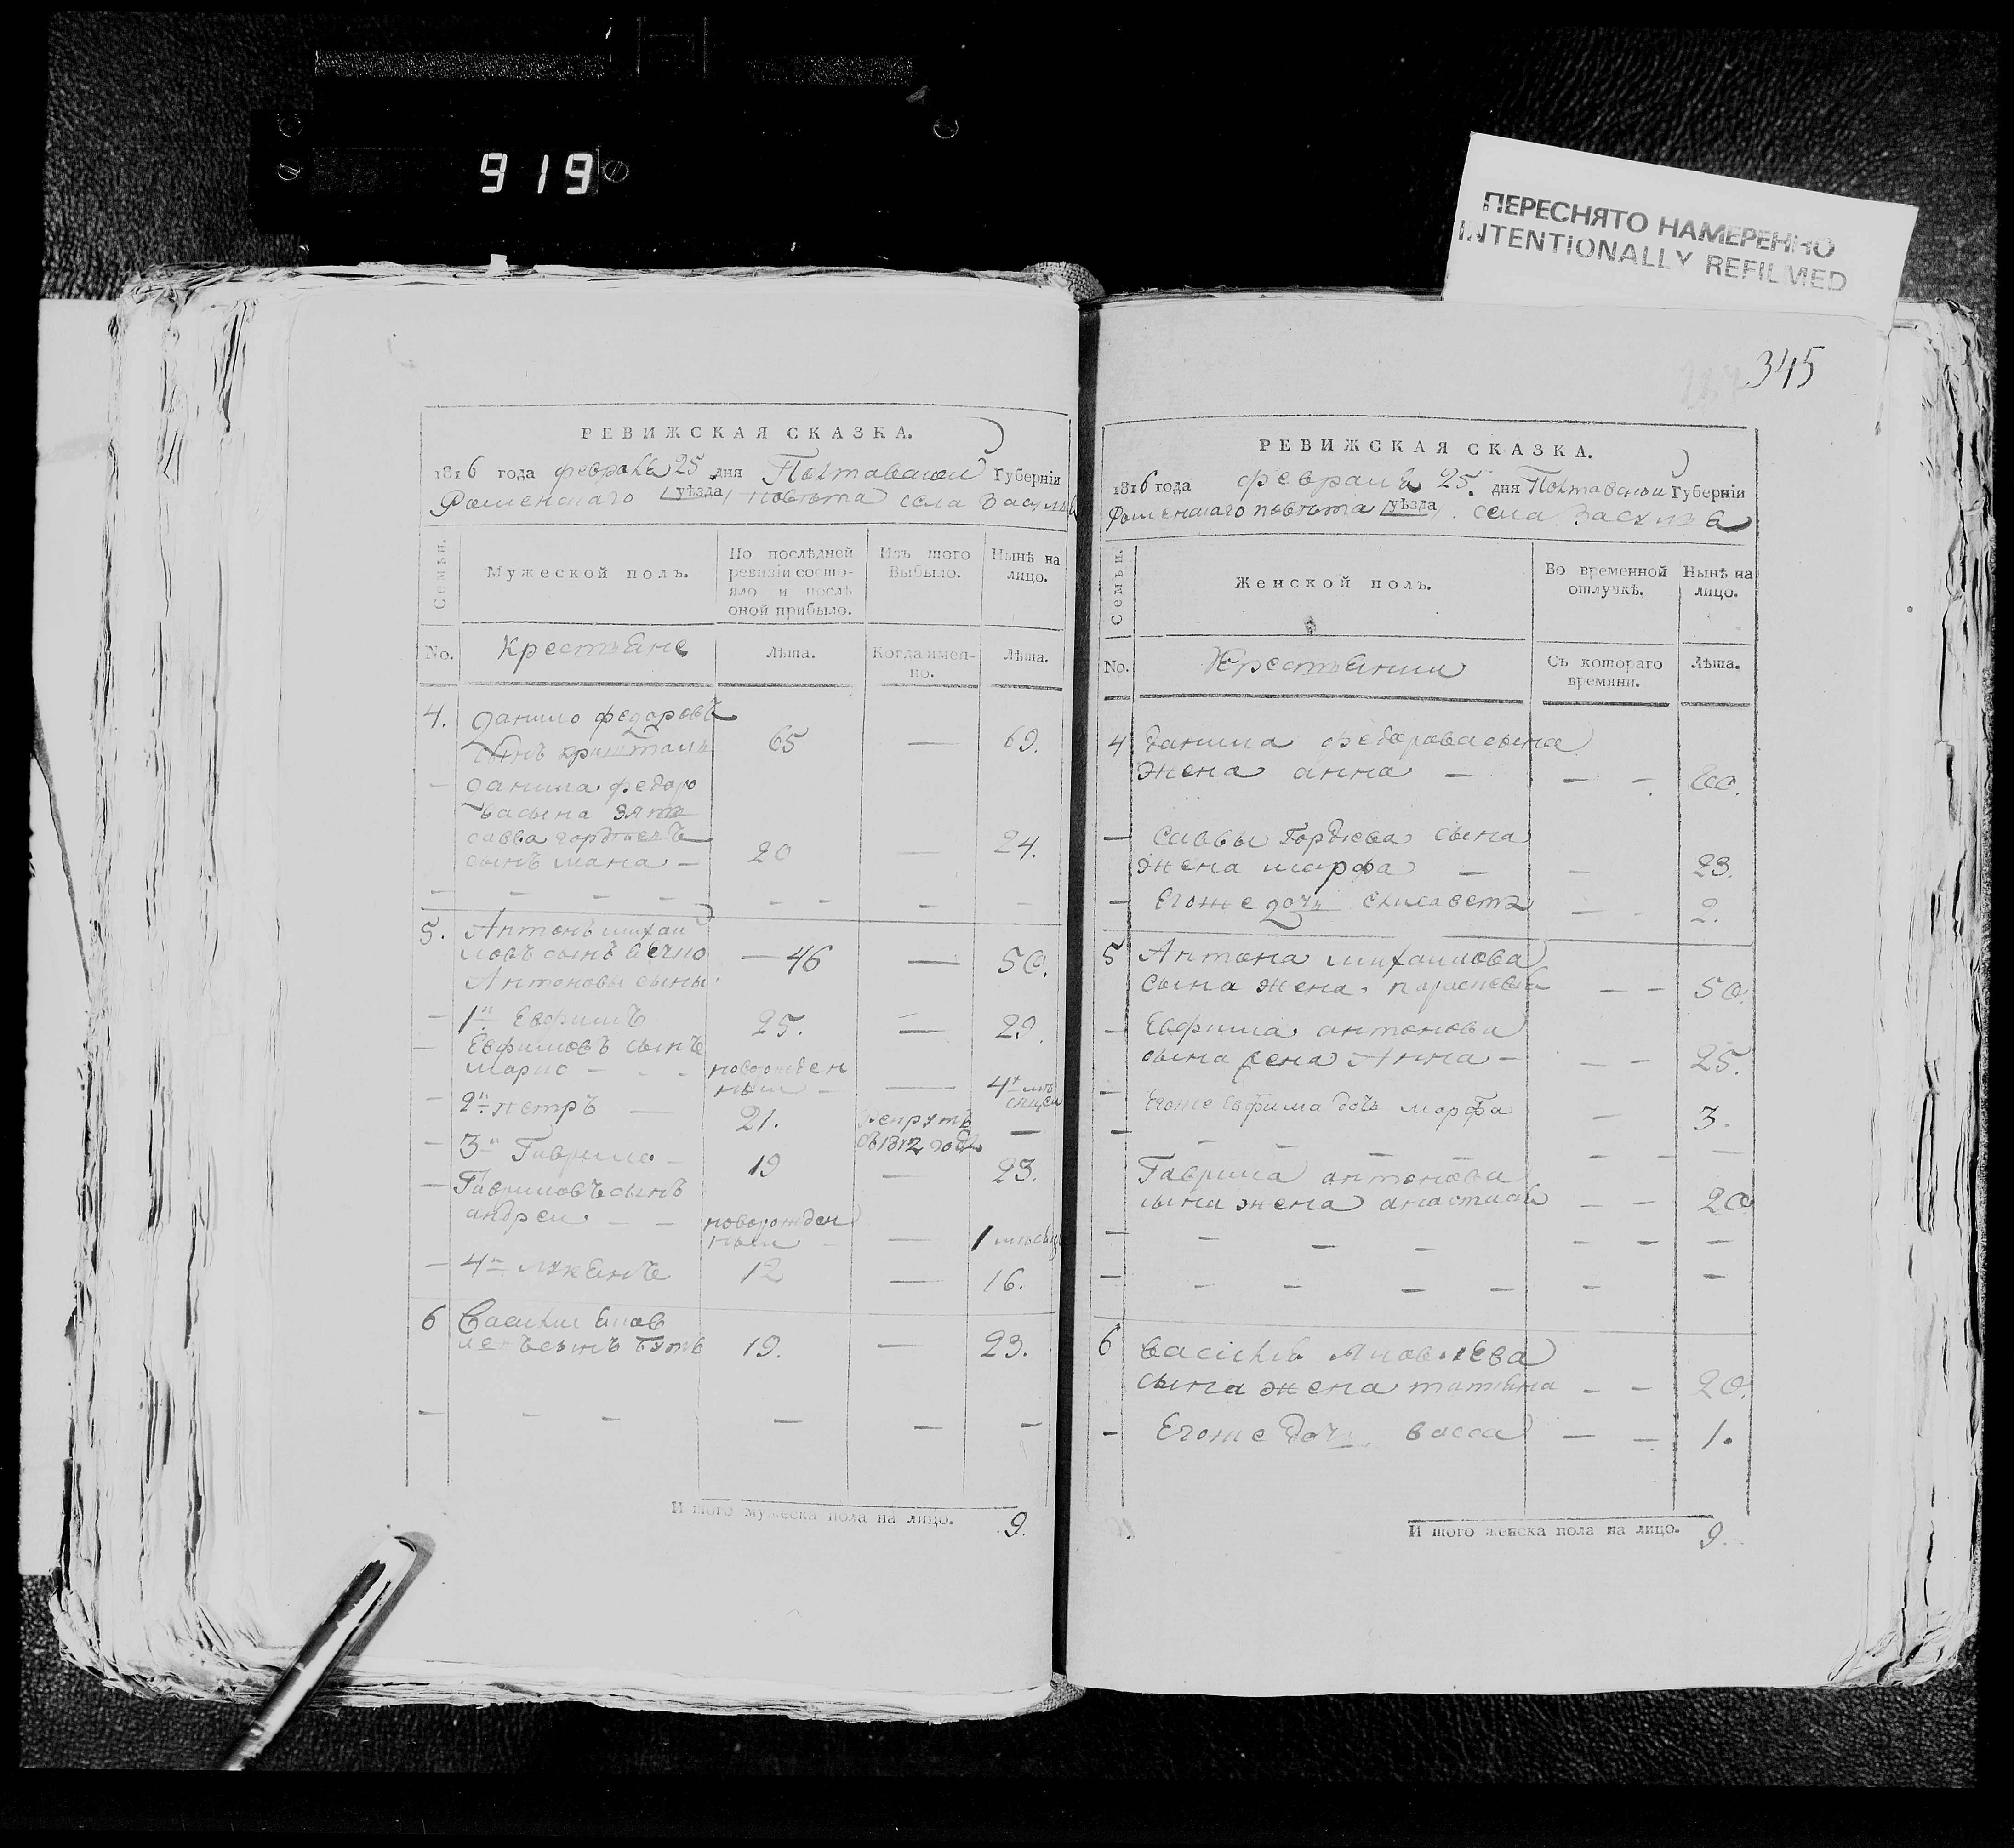 919
ПЕРЕСНЯТО НАМЕРЕННО
INTENTIONALLY REFILMED
345
РЕВИЖСКАЯ СКАЗКА.
1816 года февраля 25 дня Полтавской Губерніи
Роменскаго уѣзда повѣта села Засулья
Семьи.
Мужеской полъ.
По послѣдней
ревизіи состо-
яло и послѣ
оной прибыло.
Изъ того
Выбыло.
Нынѣ на
лицо.
No.
Крестьяне
Лѣта.
Когда имен-
но.
Лѣта.
4. данило федоровъ
сынъ кришталь 65 — 69.
— данила федоро
ва сына зять
савва гордѣевъ
сынъ 20 — 24.
— — — — — — — —
5. Антонъ михаи
ловъ сынъ — 46 — 50.
Антоновы сыны
— 1й Евфимъ 25. — 29.
— Евфимовъ сынъ
марко — — — новорожден
ныи — — 4х мѣ
сяцеи
— 2й петръ — 21. рекрутъ
въ 1812 годѣ —
— 3й Гаврило — 19 — 23.
— Гавриловъ сынъ
андреи — — новорожден
ныи — — 1 мѣсяцъ
— 4й лукянъ 12 — 16.
6 Василии Яков
левъ сынъ 19. — 23.
— — — — — —
И того мужеска пола на лицо. 9.
РЕВИЖСКАЯ СКАЗКА.
1816 года февраля 25. дня Полтавской Губерніи
Роменскаго повѣта уѣзда села Засулья
Семьи.
Женской полъ.
Во временной
отлучкѣ.
Нынѣ на
лицо.
No.
Крестьянки
Съ котораго
времяни.
Лѣта.
4 данила федорова сына
жена анна — — — 60.
— Саввы Гордѣева сына
жена марфа — — 23.
— Егоже дочь елисаветъ — — 2.
5 Антона михаилова
сына жена параскевія — — 50.
— Евфима антонова
сына жена Анна — — — 25.
— Егоже Евфима дочь марфа — 3.
— — — — — — — —
Гаврила антонова
сына жена анастасія — — 20
— — — — — — —
— — — — — — —
6 василия Яковлева
сына жена татіяна — — 20.
— Егоже дочь васса — — 1.
И того женска пола на лицо. 9.